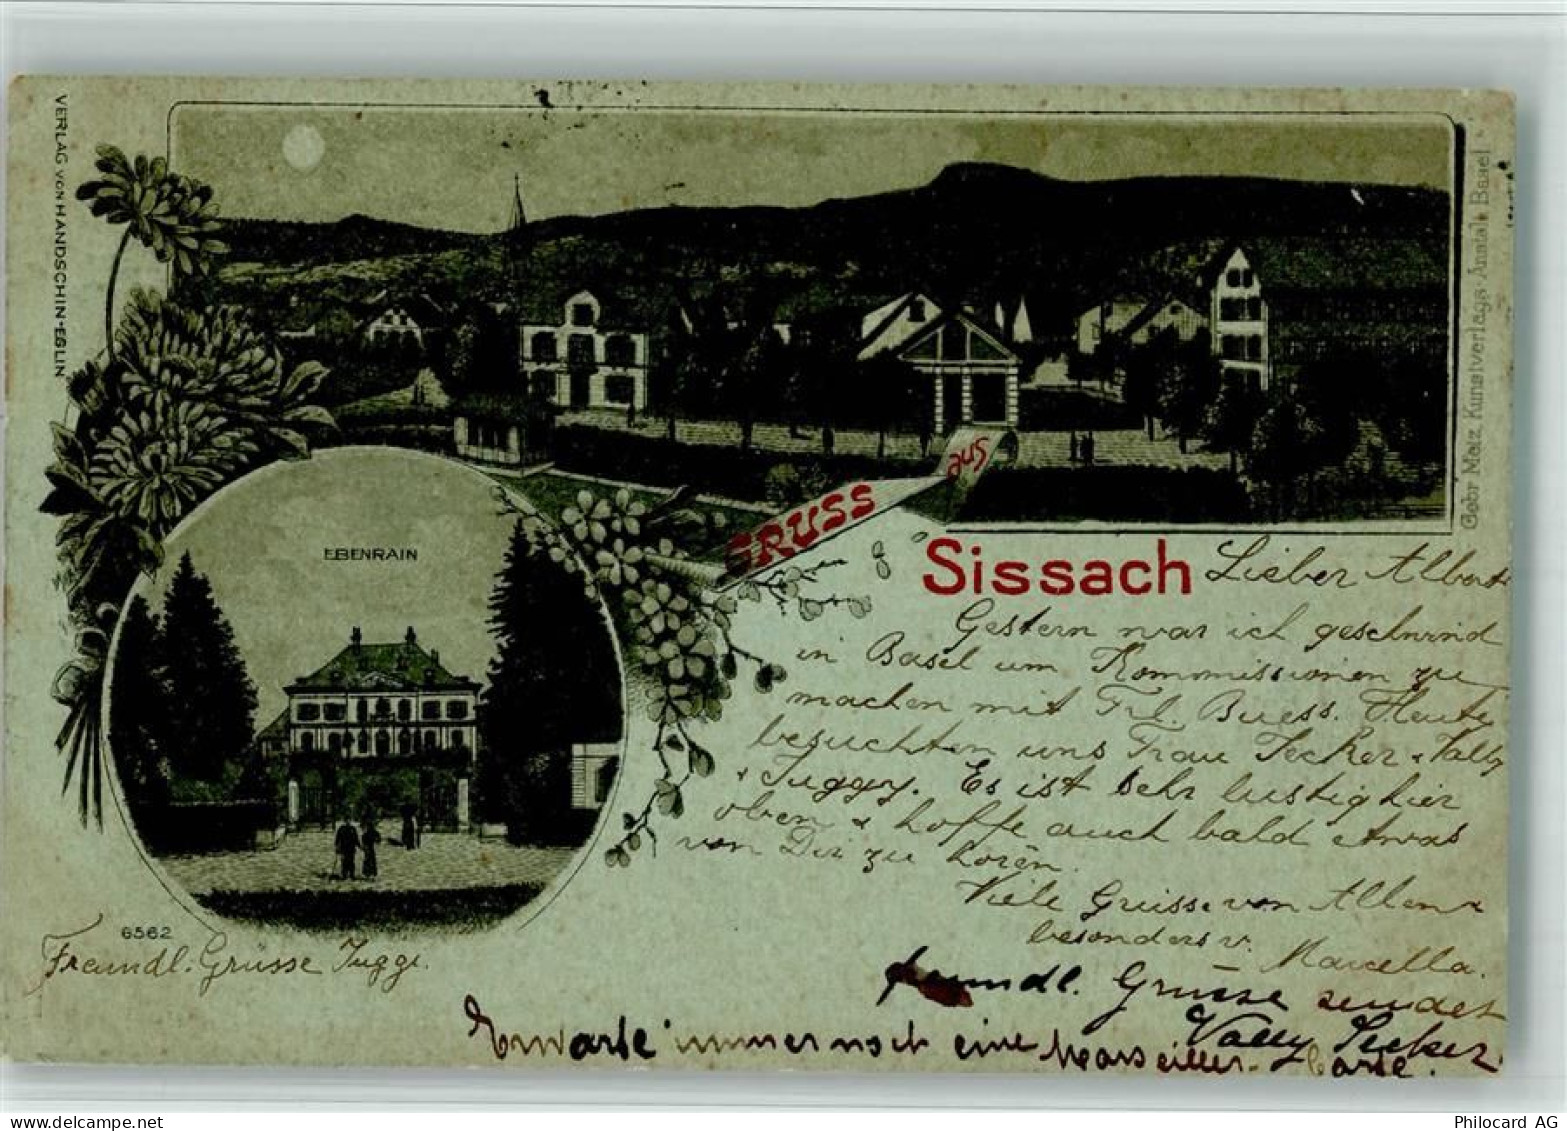 VERLAG VON HANDSCHIN-EGLIN
Gebr Metz Kunstverlags-Anstalt Basel
GRUSS aus
Sissach
EBENRAIN
6562
Lieber Albert
Gestern war ich geschwind
in Basel um Kommissionen zu
machen mit Frl. Buess. Heute
besuchten uns Frau Secker + Vally
+ Juggy. Es ist sehr lustig hier
oben + hoffe auch bald etwas
von Dir zu hören.
Viele Grüsse von Allen +
besonders v.
Marcella.
Freundl. Grüsse Juggi.
freundl. Grüsse sendet
Vally Secker
Erwarte immer noch eine Marseiller-Carte.
delcampe.net
Philocard AG